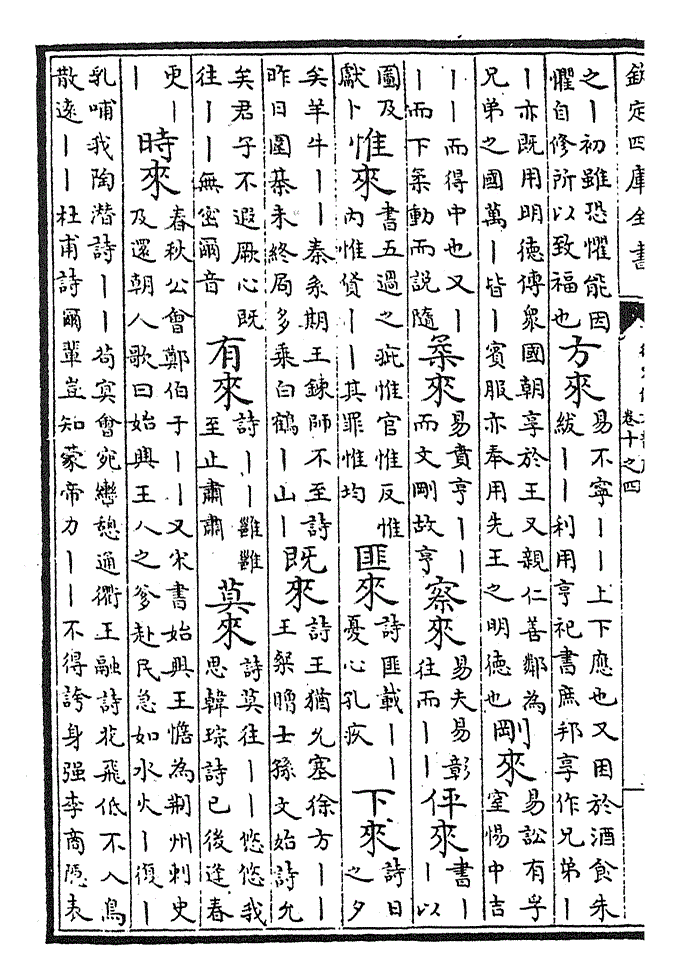 欽定四庫全書
卷十之四
之丨初雖恐懼能因
懼自修所以致福也
方來
易不寧丨丨上下應也又困於酒食朱
紱丨丨利用亨祀書庶邦享作兄弟丨
丨亦既用明德傳眾國朝享於王又親仁善鄰為
兄弟之國萬丨皆丨賓服亦奉用先王之明德也
剛來
易訟有孚
窒惕中吉
丨丨而得中也又丨
丨而下柔動而說隨
柔來
易賁亨丨丨
而文剛故亨
察來
易夫易彰
往而丨丨
伻來
書丨
丨以
圖及
獻卜
惟來
書五過之疵惟官惟反惟
內惟貨丨丨其罪惟均
匪來
詩匪載丨丨
憂心孔疚
下來
詩日
之夕
矣羊牛丨丨秦系期王鍊師不至詩
昨日圍棊未終局多乘白鶴丨山丨
既來
詩王猶允塞徐方丨丨
王粲贈士孫文始詩允
矣君子不遐厥心既
往丨丨無密爾音
有來
詩丨丨雝雝
至止肅肅
莫來
詩莫往丨丨悠悠我
思韓琮詩已後逢春
更丨
丨
時來
春秋公會鄭伯于丨丨又宋書始興王憺為荆州刺史
及還朝人歌曰始興王人之爹赴民急如水火丨復丨
乳哺我陶潛詩丨丨苟冥會宛轡憩通衢王融詩花飛低不入鳥
散遠丨丨杜甫詩爾輩豈知蒙帝力丨丨不得誇身强李商隱表